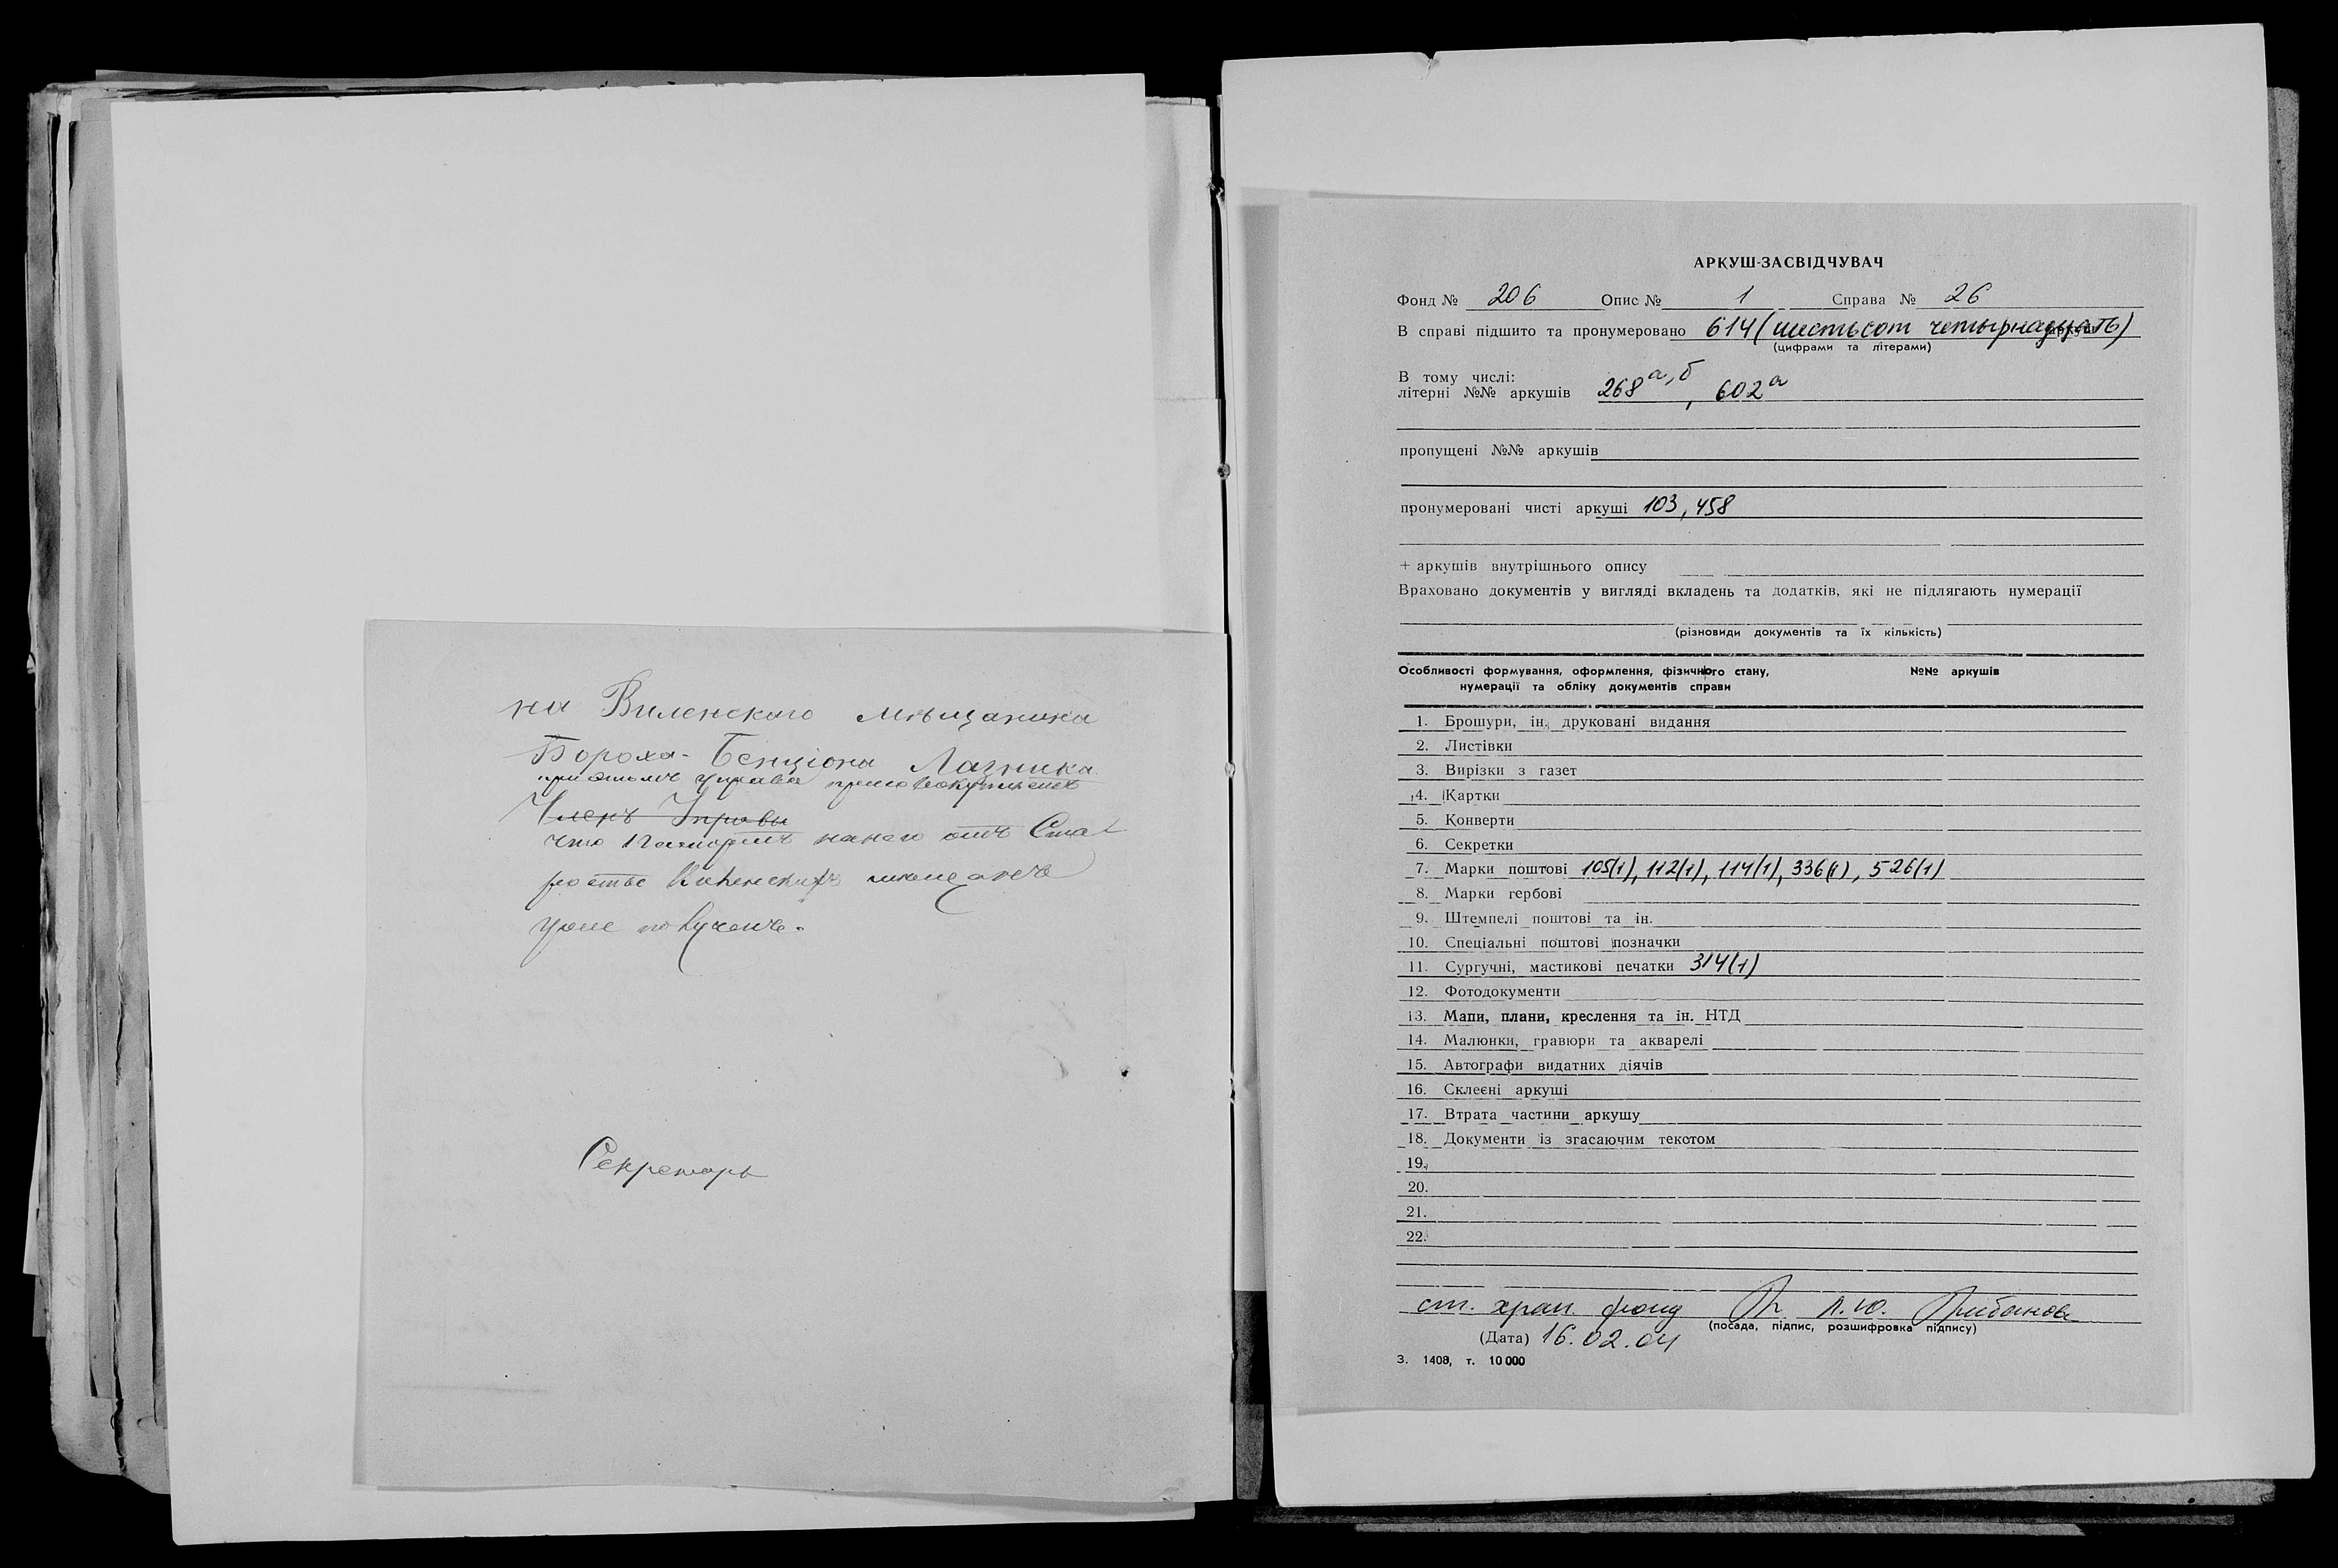 на Виленскаго мѣщанина
Бороха-Бенціона Лазника
при этомъ Управа присовокупляетъ
Членъ Управы
что паспортъ на него отъ Ста
росты Виленскихъ мѣщанъ
уже полученъ.
Секретарь
АРКУШ-ЗАСВІДЧУВАЧ
Фонд № 206 Опис № 1 Справа № 26
В справі підшито та пронумеровано 614 (шестьсот четырнадцать) аркушів
(цифрами та літерами)
В тому числі:
літерні №№ аркушів 268а,б, 602а
пропущені №№ аркушів
пронумеровані чисті аркуші 103, 458
+ аркушів внутрішнього опису
Враховано документів у вигляді вкладень та додатків, які не підлягають нумерації
(різновиди документів та їх кількість)
Особливості формування, оформлення, фізичного стану, №№ аркушів
нумерації та обліку документів справи
1. Брошури, ін. друковані видання
2. Листівки
3. Вирізки з газет
4. Картки
5. Конверти
6. Секретки
7. Марки поштові 105(1), 112(1), 114(1), 336(1), 526(1)
8. Марки гербові
9. Штемпелі поштові та ін.
10. Спеціальні поштові позначки
11. Сургучні, мастикові печатки 314(1)
12. Фотодокументи
13. Мапи, плани, креслення та ін. НТД
14. Малюнки, гравюри та акварелі
15. Автографи видатних діячів
16. Склеєні аркуші
17. Втрата частини аркушу
18. Документи із згасаючим текстом
19.
20.
21.
22.
ст. хран. фонд Л.Ю.
(посада, підпис, розшифровка підпису)
(Дата) 16.02.04
З. 1408, т. 10 000